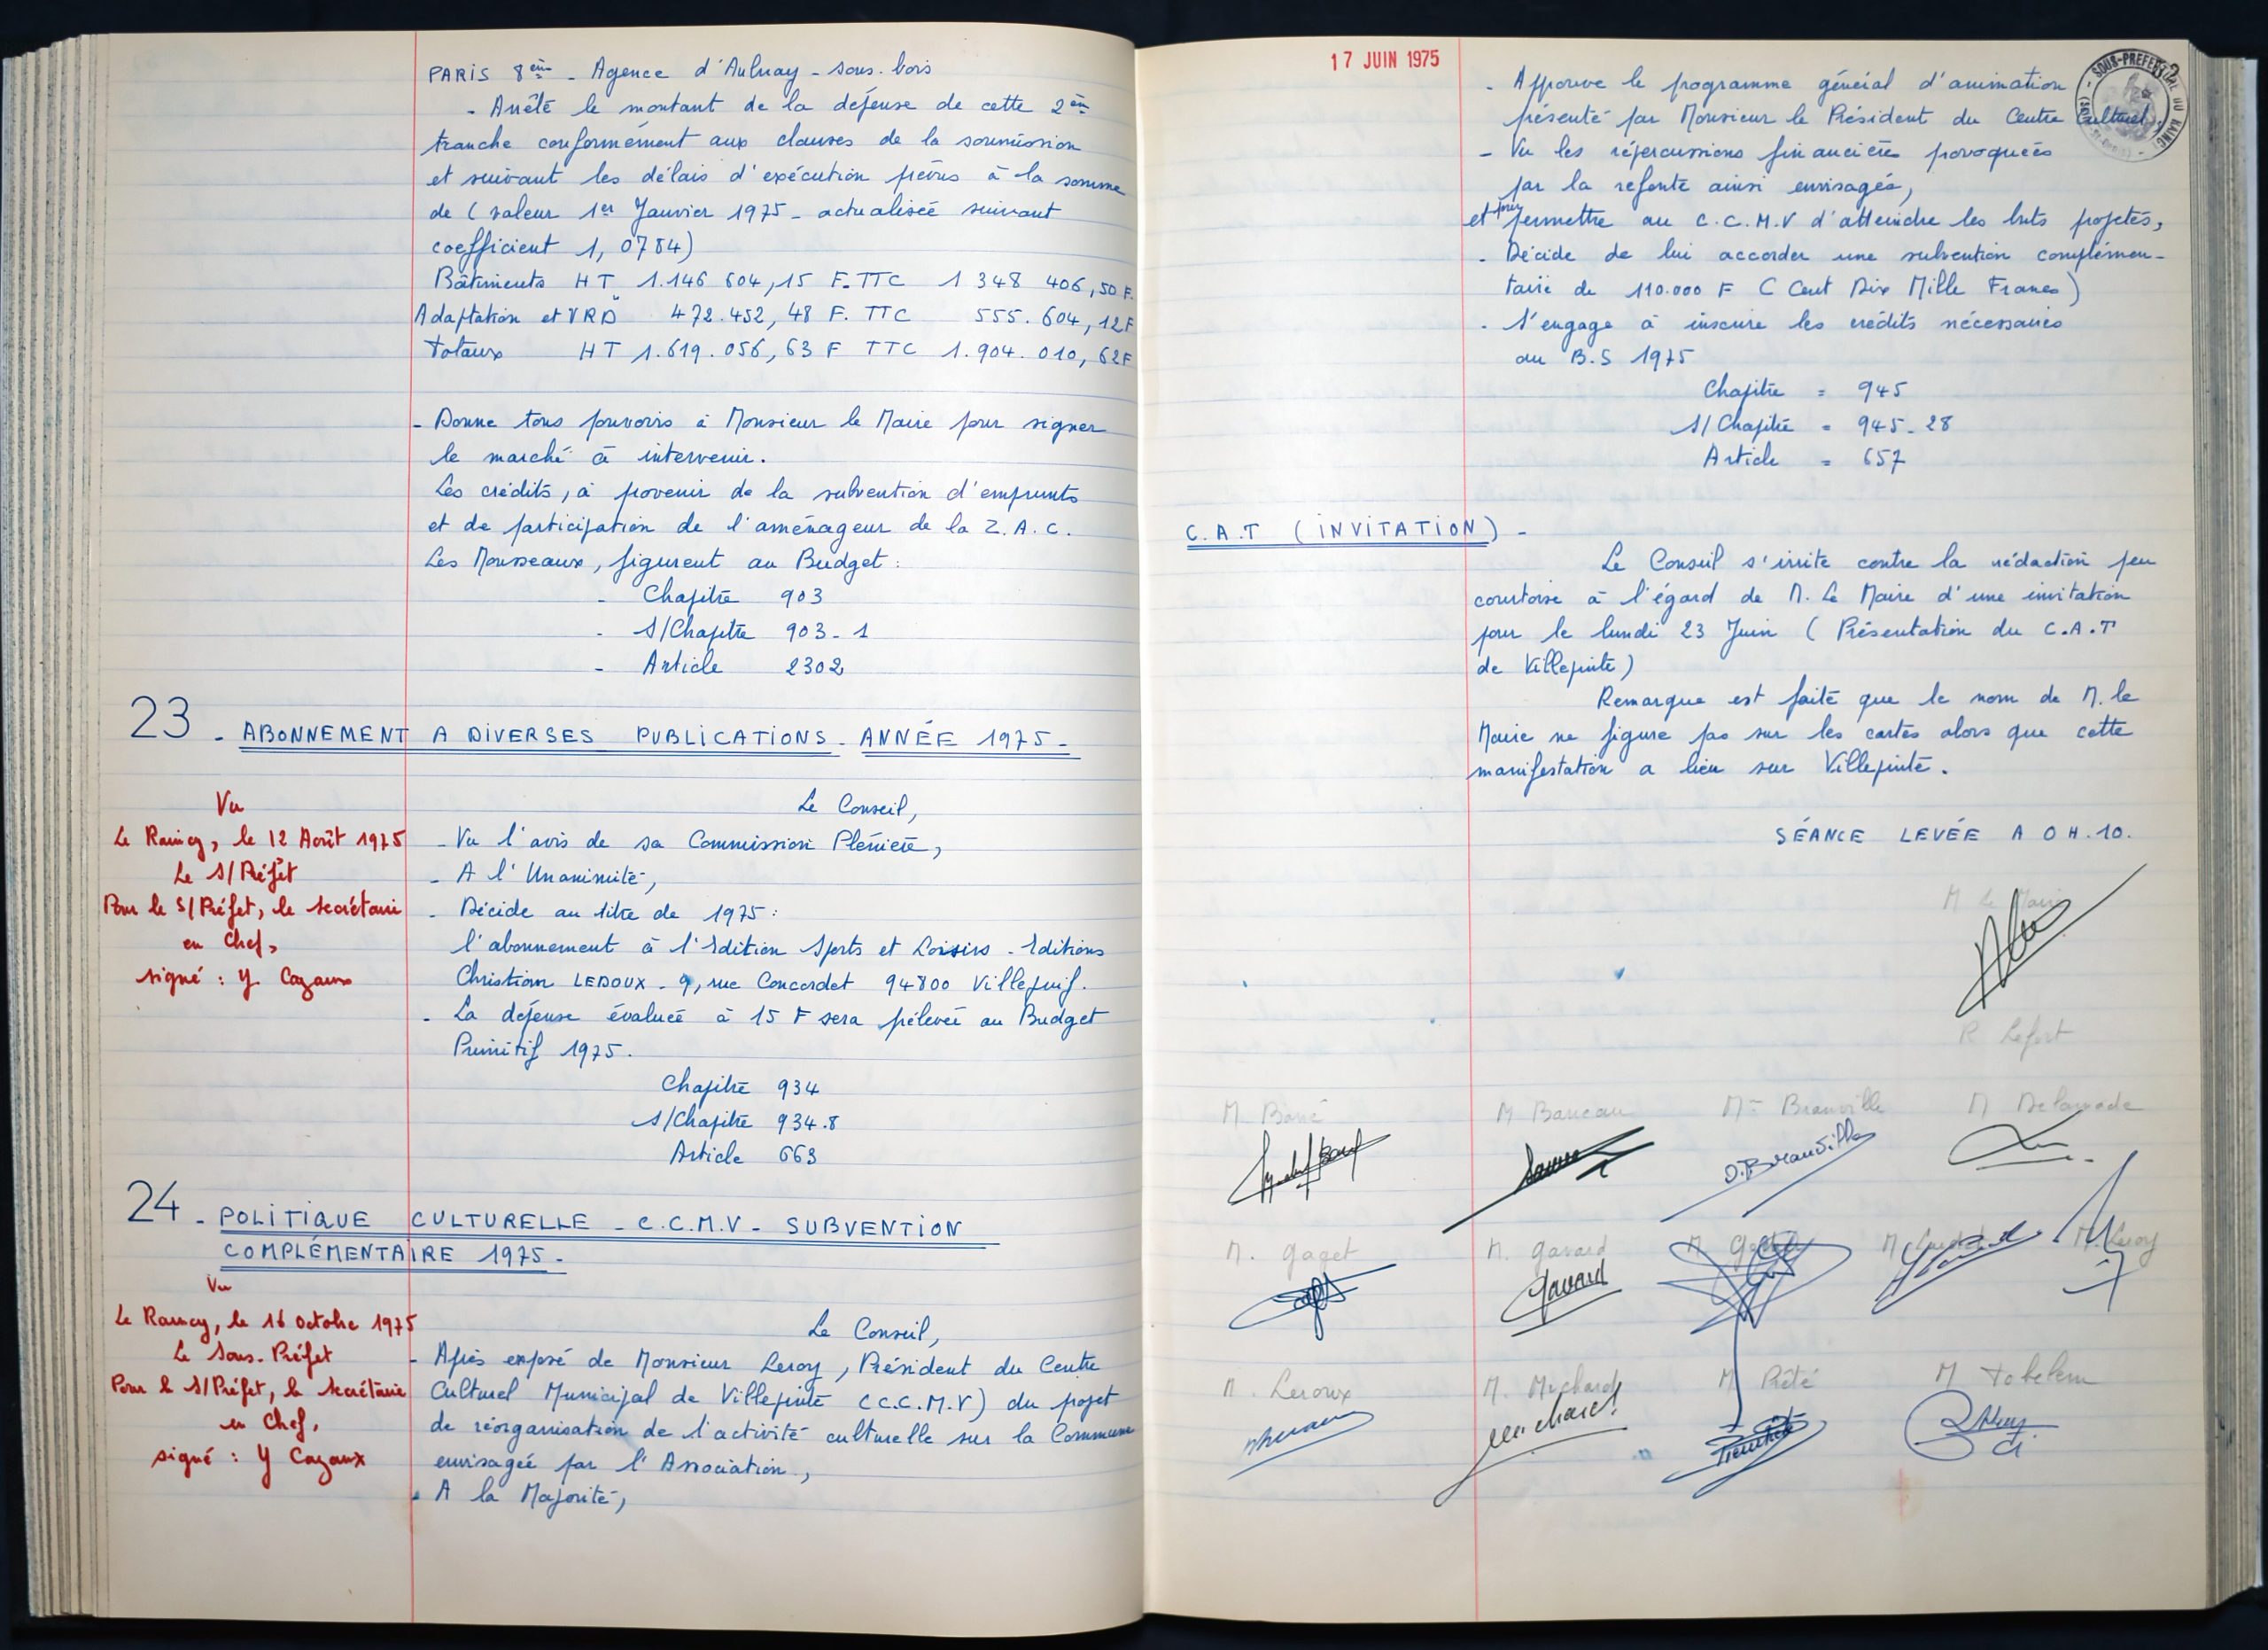 PARIS 8ème - Agence d'Aulnay-sous-bois
- Arrêté le montant de la dépense de cette 2ème
tranche conformément aux clauses de la soumission
et suivant les délais d'exécution prévus à la somme
de (valeur 1er Janvier 1975 - actualisée suivant
coefficient 1,0784)
Bâtiments HT 1.146 604,15 F. TTC 1 348 406,50 F.
Adaptation et VRD 472.452,48 F. TTC 555.604,12F
Totaux HT 1.619.056,63 F TTC 1.904.010,62F
- Donne tous pouvoirs à Monsieur le Maire pour signer
le marché à intervenir.
Les crédits, à provenir de la subvention d'emprunts
et de participation de l'aménageur de la Z.A.C.
Les Mousseaux, figurent au Budget :
- Chapitre 903
- S/Chapitre 903-1
- Article 2302
23 - ABONNEMENT A DIVERSES PUBLICATIONS - ANNÉE 1975 -
Vu
Le Raincy, le 12 Août 1975
Le S/Préfet
Pour le S/Préfet, le secrétaire
en Chef,
signé : Y. Cazaux
Le Conseil,
- Vu l'avis de sa Commission Plénière,
- A l'Unanimité,
- Décide au titre de 1975 :
l'abonnement à l'Edition Sports et Loisirs - Editions
Christian LEDOUX - 9, rue Concordet 94800 Villejuif.
- La dépense évaluée à 15 F sera prélevée au Budget
Primitif 1975.
Chapitre 934
S/Chapitre 934.8
Article 663
24 - POLITIQUE CULTURELLE - C.C.M.V - SUBVENTION
COMPLÉMENTAIRE 1975 -
Vu
Le Raincy, le 16 octobre 1975
Le Sous-Préfet
Pour le S/Préfet, le secrétaire
en Chef,
signé : Y Cazaux
Le Conseil,
- Après exposé de Monsieur Leroy, Président du Centre
Culturel Municipal de Villepinte (C.C.M.V) du projet
de réorganisation de l'activité culturelle sur la Commune
envisagée par l'Association,
- A la Majorité,
17 JUIN 1975
SOUS-PREFECTURE DU RAINCY
- Approuve le programme général d'animation
présenté par Monsieur le Président du Centre Culturel,
- Vu les répercussions financières provoquées
par la refonte ainsi envisagée,
et pour permettre au C.C.M.V d'atteindre les buts projetés,
- Décide de lui accorder une subvention complémen-
taire de 110.000 F (Cent Dix Mille Francs)
- S'engage à inscrire les crédits nécessaires
au B.S 1975
Chapitre = 945
S/Chapitre = 945-28
Article = 657
C.A.T (INVITATION) -
Le Conseil s'irrite contre la rédaction peu
courtoise à l'égard de M. Le Maire d'une invitation
pour le lundi 23 Juin (Présentation du C.A.T
de Villepinte)
Remarque est faite que le nom de M. le
Maire ne figure pas sur les cartes alors que cette
manifestation a lieu sur Villepinte.
SÉANCE LEVÉE A 0 H.10.
M le Maire
R Lefort
M. Barré M Bareau Mme Brauville M Delamade
D. Brauville
M. Gaget M. Gavard M M M. Leroy
Gavard
M. Leroux M. Michard M Piété M Tobelem
Michard